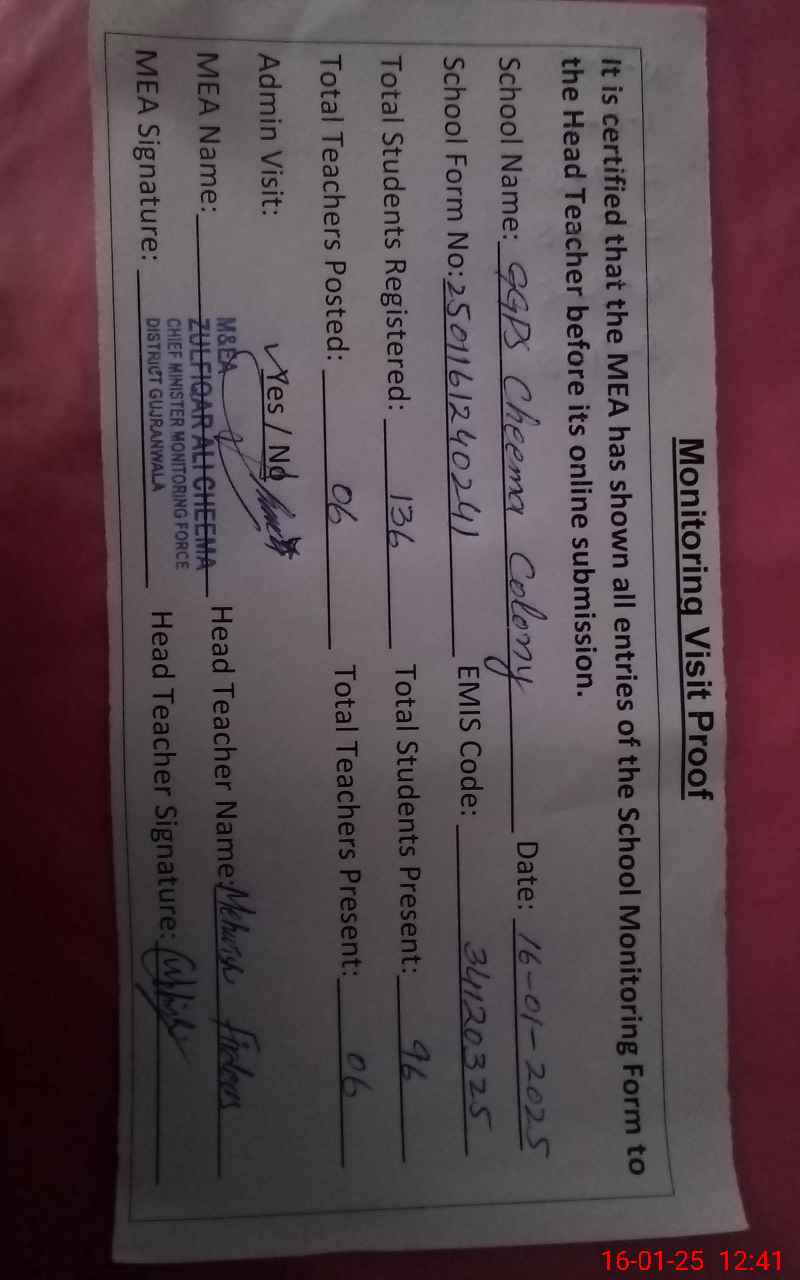 Monitoring Visit Proof
It is certified that the MEA has shown all entries of the School Monitoring Form to
the Head Teacher before its online submission.
School Name: GGPS Cheema Colony Date: 16-01-2025
School Form No: 2501161240241 EMIS Code: 34120325
Total Students Registered: 136 Total Students Present: 96
Total Teachers Posted: 06 Total Teachers Present: 06
Admin Visit: Yes / No
MEA Name: Head Teacher Name: Firdous
MEA Signature: Head Teacher Signature:
M&EA
ZULFIQAR ALI CHEEMA
CHIEF MINISTER MONITORING FORCE
DISTRICT GUJRANWALA
16-01-25 12:41